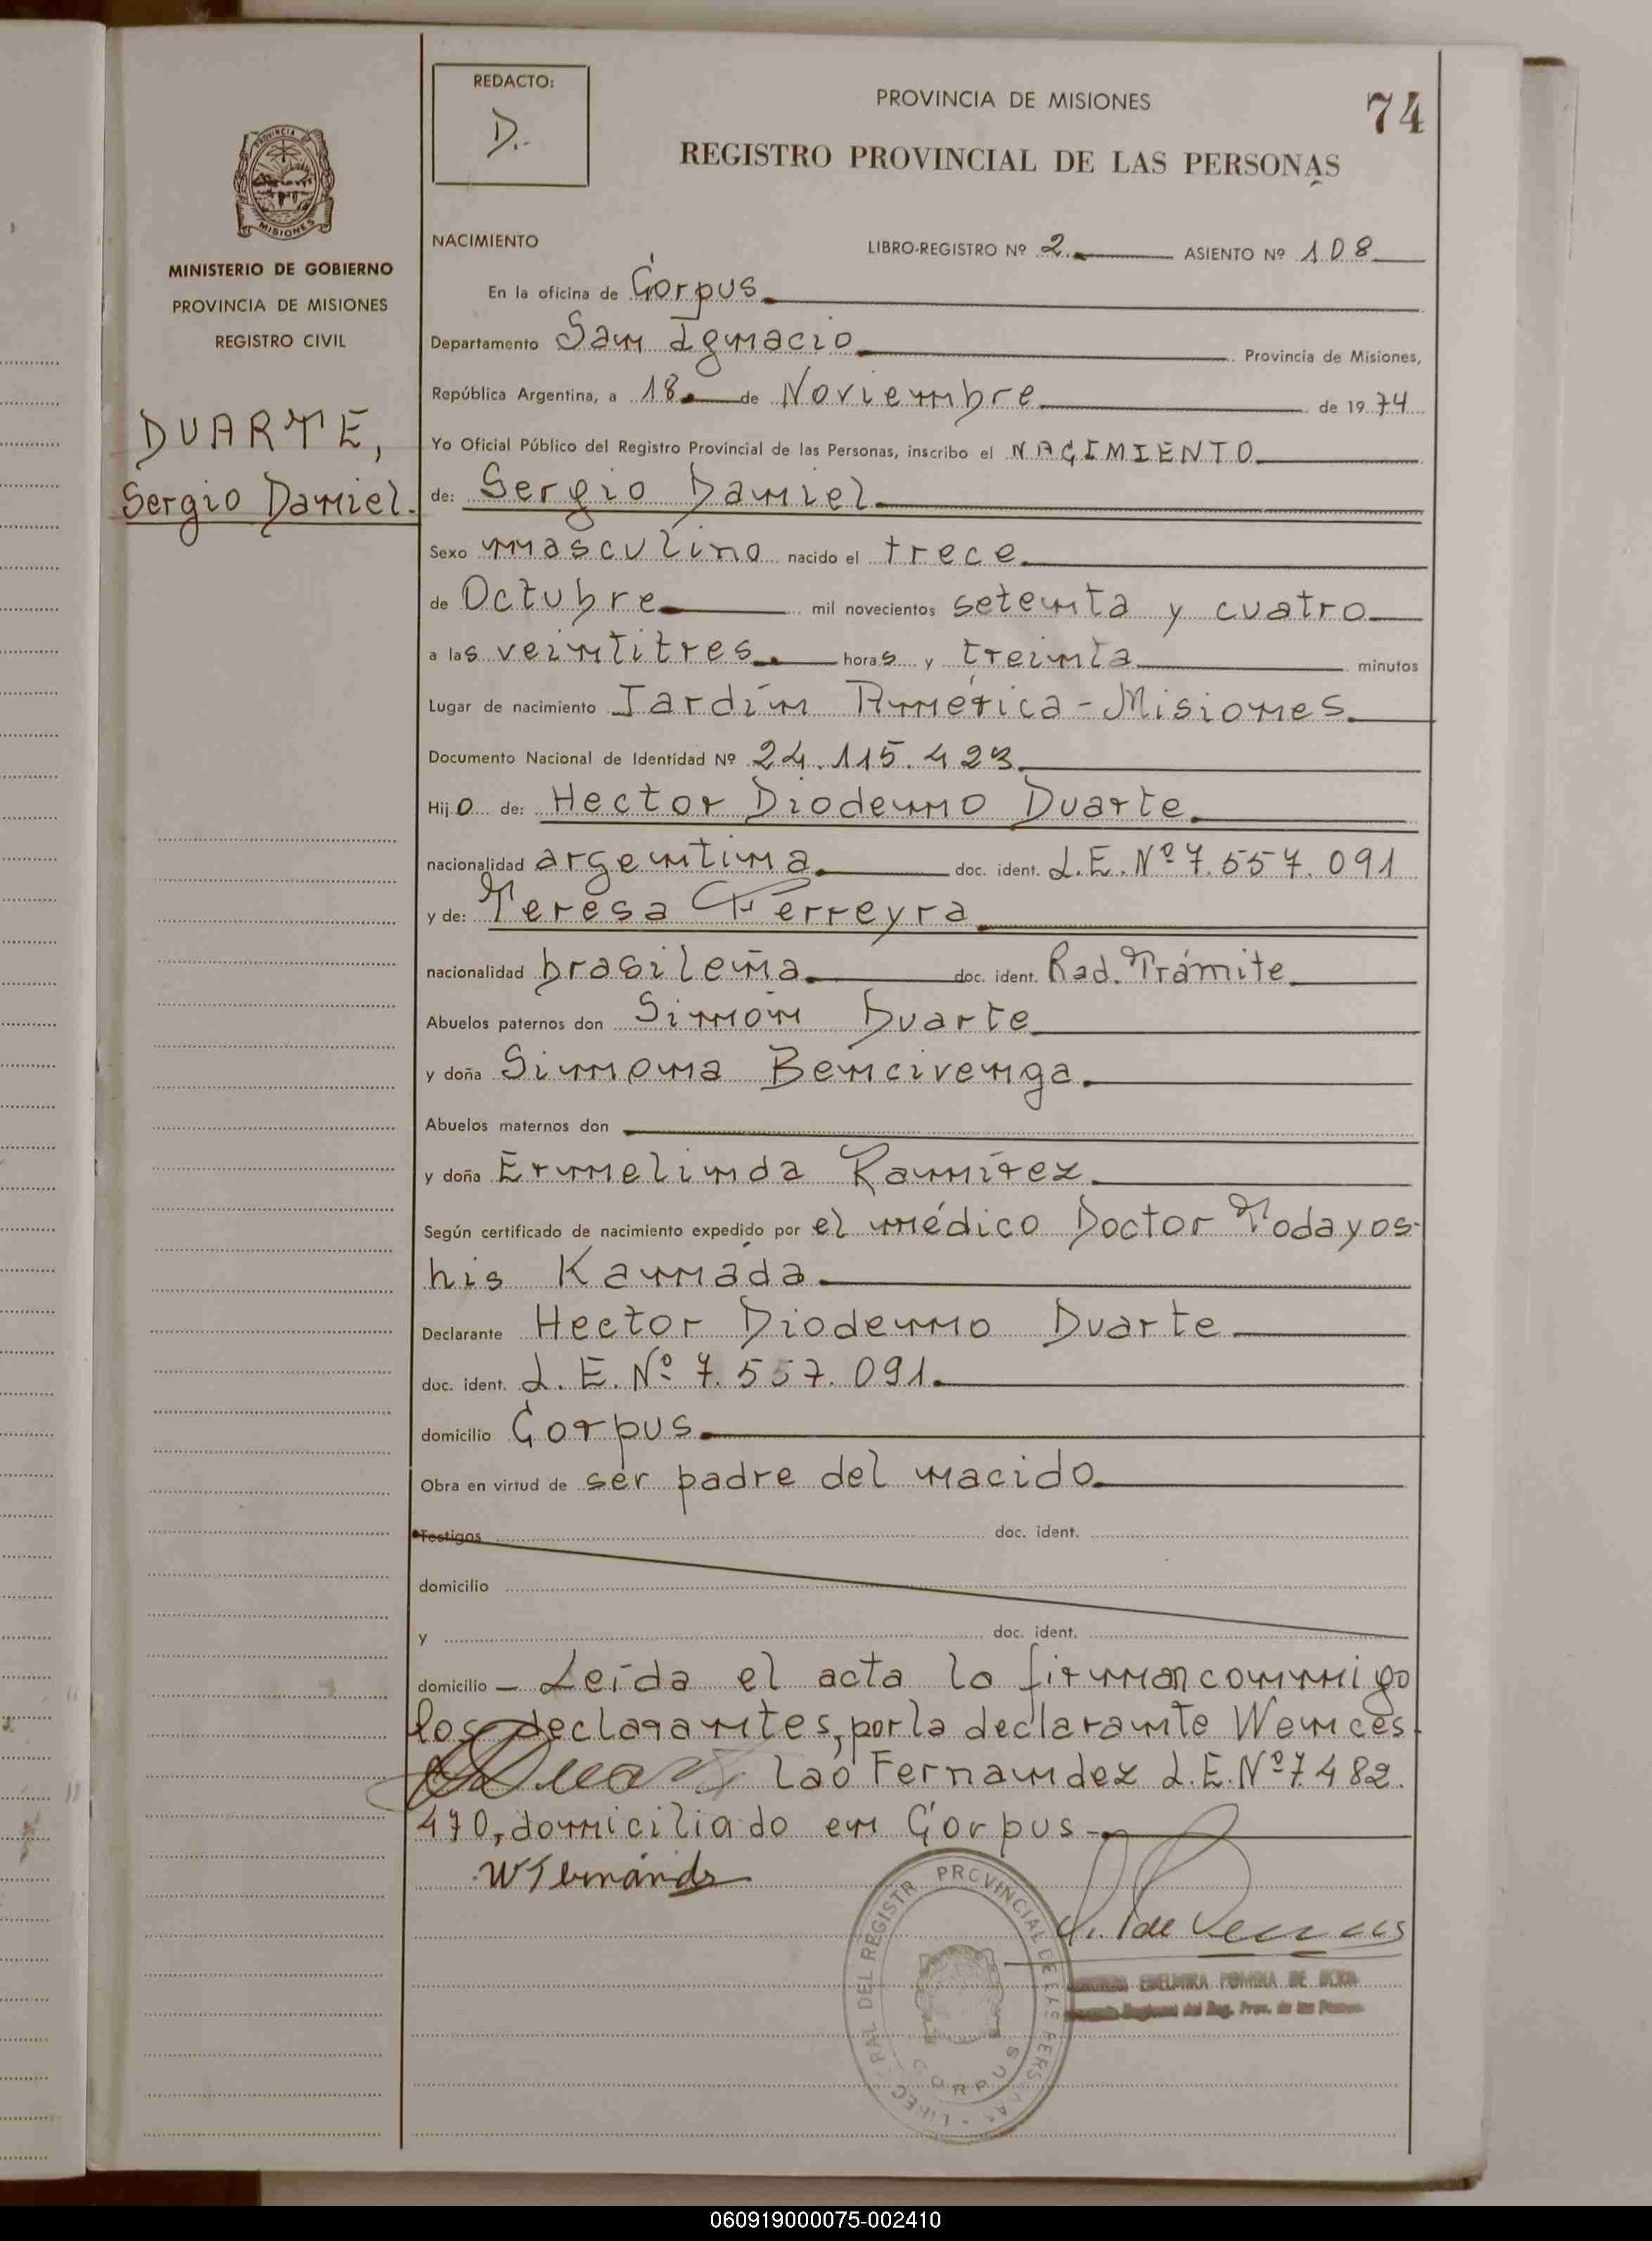 REDACTO:
D.-
PROVINCIA DE MISIONES
74
REGISTRO PROVINCIAL DE LAS PERSONAS
PROVINCIA DE
MISIONES
MINISTERIO DE GOBIERNO
PROVINCIA DE MISIONES
REGISTRO CIVIL
DUARTE,
Sergio Daniel.
NACIMIENTO LIBRO-REGISTRO Nº 2 ASIENTO Nº 108
En la oficina de Corpus
Departamento San Ignacio Provincia de Misiones,
República Argentina, a 18 de Noviembre de 1974
Yo Oficial Público del Registro Provincial de las Personas, inscribo el NACIMIENTO
de: Sergio Daniel
Sexo masculino nacido el trece
de Octubre mil novecientos setenta y cuatro
a las veintitres horas y treinta minutos
Lugar de nacimiento Jardín América - Misiones
Documento Nacional de Identidad Nº 24.115.423
Hijo de: Hector Diodemo Duarte
nacionalidad argentina doc. ident. L.E. Nº 7.557.091
y de: Teresa Ferreyra
nacionalidad brasileña doc. ident. Rad. Trámite
Abuelos paternos don Simón Duarte
y doña Simona Bencivenga
Abuelos maternos don
y doña Ermelinda Ramírez
Según certificado de nacimiento expedido por el médico Doctor Todayos-
his Kamada
Declarante Hector Diodemo Duarte
doc. ident. L.E. Nº 7.557.091
domicilio Corpus
Obra en virtud de ser padre del nacido
Testigos doc. ident.
domicilio
y doc. ident.
domicilio — Leída el acta la firman conmigo
los declarantes, por la declarante Wences-
lao Fernandez L.E. Nº 7.482.
470, domiciliado en Corpus-
W Fernández
PROVINCIAL DE LAS PERS
DEL REGISTR
CORPUS
060919000075-002410